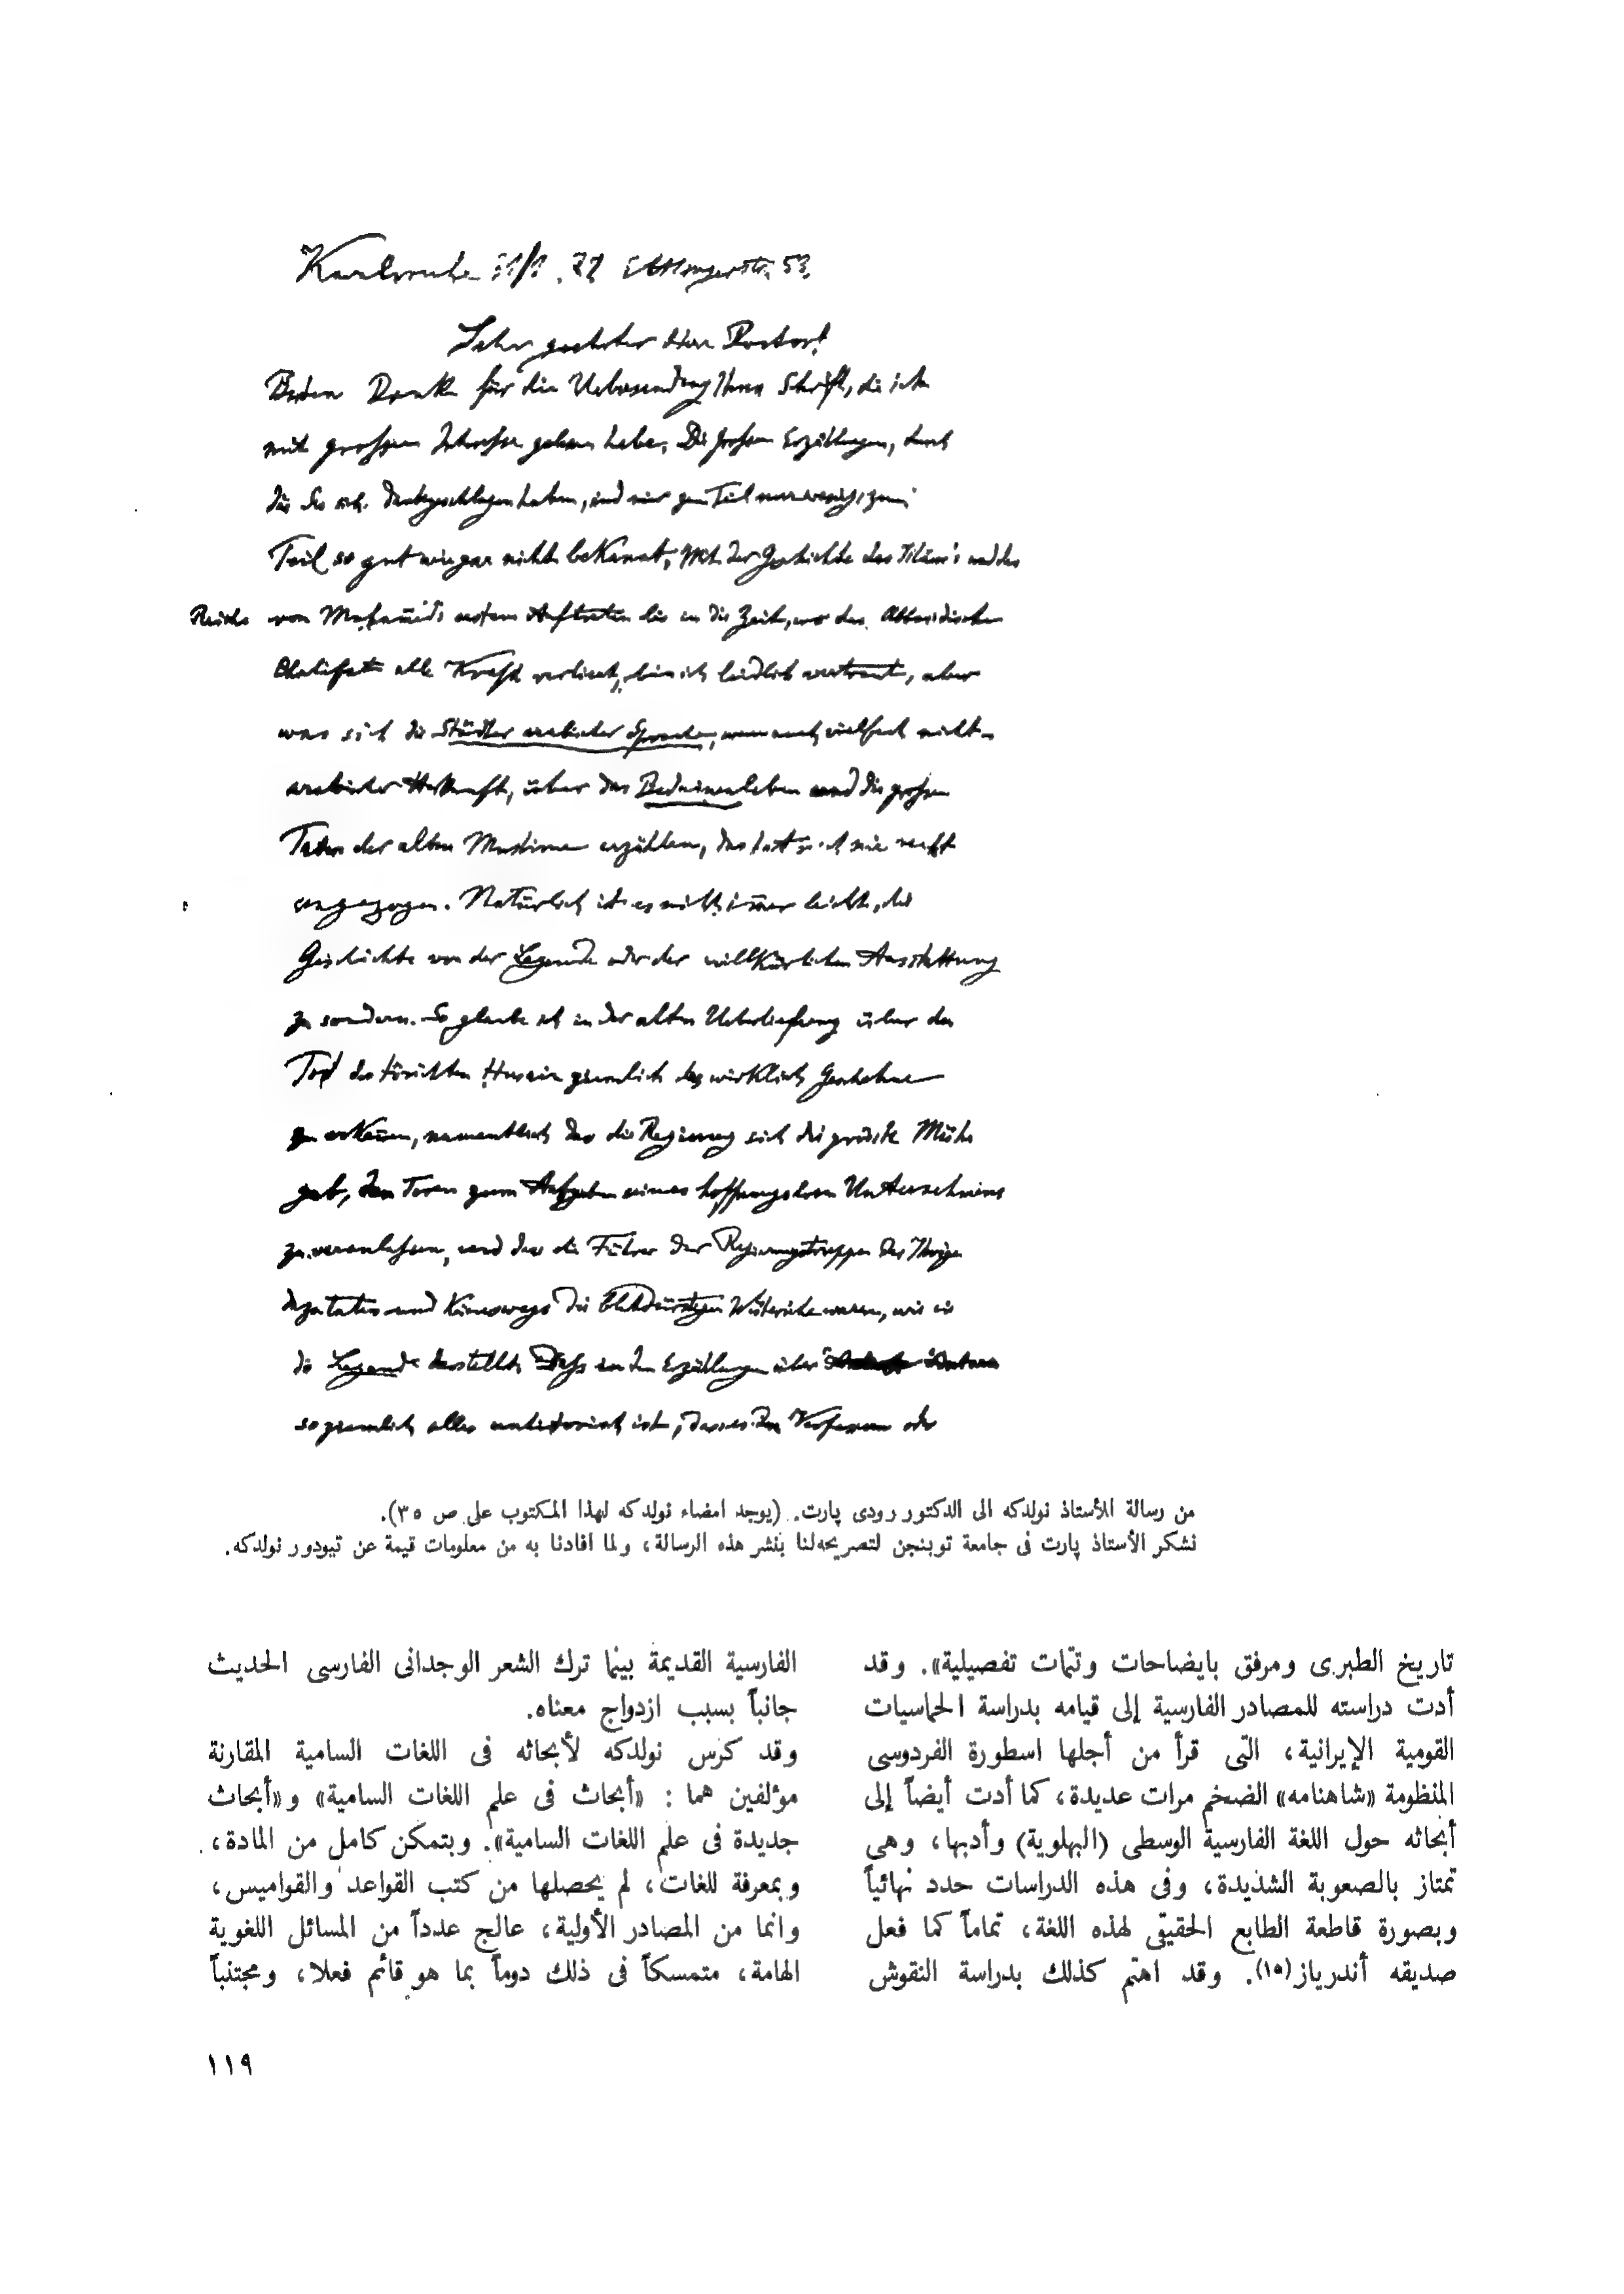 Karlsruhe 31/1. 28 Ettlingerstr. 53.
Sehr geehrter Herr Doctor!
Besten Dank für die Uebersendung Ihrer Schrift, die ich
mit grossem Interesse gelesen habe. Die grossen Erzählungen, durch
die Sie sich durchgeschlagen haben, sind mir zum Teil nur wenig, zum
Teil so gut wie gar nicht bekannt. Mit der Geschichte des Islām's und des
Reichs von Muḥammed's erstem Auftreten bis in die Zeit, wo das Abbasidische
Chalifat alle Kraft verliert, bin ich leidlich vertraut, aber
was sich die Städter arabischer Sprache, wenn auch vielfach nicht-
arabischer Herkunft, über das Beduinenleben und die grossen
Taten der alten Muslime erzählen, das hat mich nie recht
angezogen. Natürlich ist es nicht immer leicht, die
Geschichte von der Legende oder der willkürlichen Ausstattung
zu sondern. So glaube ich in der alten Ueberlieferung über den
Tod des törichten Ḥusain ziemlich das wirklich Geschehene
zu erkennen, namentlich dass die Regierung sich die grösste Mühe
gab, den Toren zum Aufgeben seines hoffnungslosen Unternehmens
zu veranlassen, und dass die Führer der Regierungstruppen das Ihrige
dazu taten und keineswegs die blutdürstigen Wüteriche waren, wie sie
die Legende darstellt. Dass an den Erzählungen über ʿAntara
so ziemlich alles unhistorisch ist, dass es den Verfassern oder
من رسالة للأستاذ نولدكه الى الدكتور رودى پارت. (يوجد امضاء نولدكه لهذا المكتوب على ص ٣٥).
نشكر الأستاذ پارت فى جامعة توبنجن لتصريحه لنا بنشر هذه الرسالة، ولما افادنا به من معلومات قيمة عن تيودور نولدكه.
تاريخ الطبرى ومرفق بايضاحات وتتمات تفصيلية». وقد
أدت دراسته للمصادر الفارسية إلى قيامه بدراسة الحماسيات
القومية الإيرانية، التى قرأ من أجلها اسطورة الفردوسى
المنظومة «شاهنامه» الضخم مرات عديدة، كما أدت أيضاً إلى
أبحاثه حول اللغة الفارسية الوسطى (البهلوية) وأدبها، وهى
تمتاز بالصعوبة الشديدة، وفى هذه الدراسات حدد نهائياً
وبصورة قاطعة الطابع الحقيقى لهذه اللغة، تماماً كما فعل
صديقه أندرياز(١٥). وقد اهتم كذلك بدراسة النقوش
الفارسية القديمة بينما ترك الشعر الوجدانى الفارسى الحديث
جانباً بسبب ازدواج معناه.
وقد كرس نولدكه لأبحاثه فى اللغات السامية المقارنة
مؤلفين هما : «أبحاث فى علم اللغات السامية» و«أبحاث
جديدة فى علم اللغات السامية». وبتمكن كامل من المادة،
وبمعرفة للغات، لم يحصلها من كتب القواعد والقواميس،
وانما من المصادر الأولية، عالج عدداً من المسائل اللغوية
الهامة، متمسكاً فى ذلك دوماً بما هو قائم فعلا، ومجتنباً
١١٩